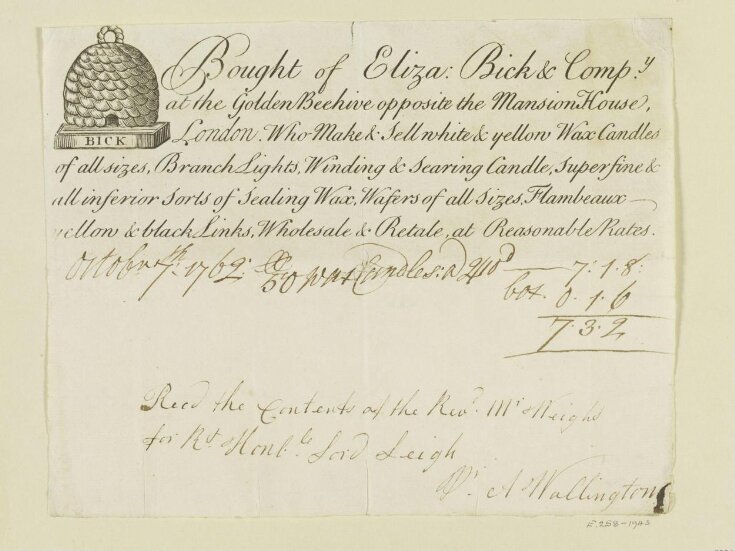 BICK
Bought of Eliza: Bick & Comp.y
at the Golden Beehive opposite the Mansion House,
London. Who Make & Sell white & yellow Wax Candles
of all sizes, Branch Lights, Winding & Searing Candle, Superfine &
all inferior Sorts of Sealing Wax, Wafers of all Sizes, Flambeaux
yellow & black Links, Wholesale & Retale, at Reasonable Rates.
Octobr 7th 1762: 50 wax Candles: a 2/10d — 7:1:8:
box. 0.1.6
7:3:2
Recd the Contents of the Revd. Mr
for Rt Honble Lord Leigh
Pr A Wallington
E.258-1943